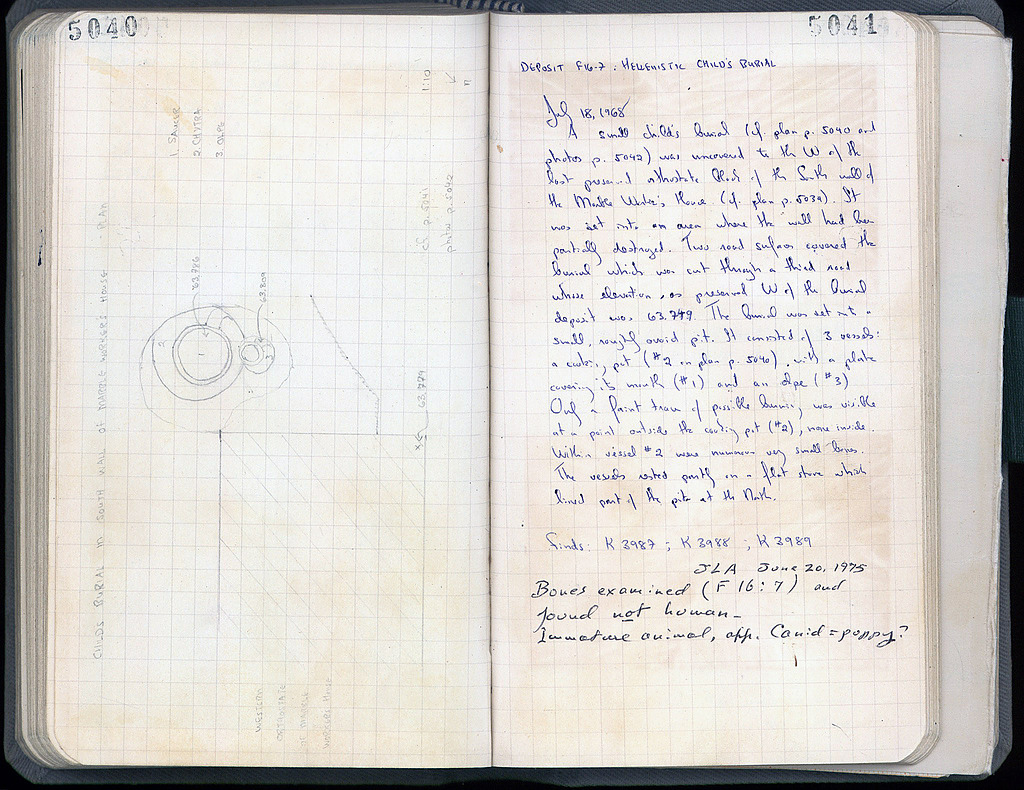 5040
CHILDS BURIAL IN SOUTH WALL OF MARBLE WORKER'S HOUSE - PLAN
1. SAUCER
2. CHYTRA
3. OLPE
1:10
n
cf. p. 5041
photo p. 5042
63.786
63.809
63.779
1
2
3
WESTERN
ORTHOSTATE
OF MARBLE
WORKERS HOUSE
5041
DEPOSIT F16-7: HELLENISTIC CHILD'S BURIAL
July 18, 1968
A small child's burial (cf. plan p. 5040 and
photos p. 5042) was uncovered to the W of the
last preserved orthostate block of the South wall of
the Marble Worker's House. (cf. plan p. 5039). It
was set into an area where the wall had been
partially destroyed. Two road surfaces covered the
burial which was cut through a third road
whose elevation, as preserved W of the burial
deposit was 63.749. The burial was set in a
small, roughly ovoid pit. It consisted of 3 vessels:
a cooking pot (#2 on plan p. 5040), with a plate
covering its mouth (#1) and an olpe (#3)
Only a faint trace of possible burning was visible
at a point outside the cooking pot (#2), none inside.
Within vessel #2 were numerous very small bones.
The vessels rested partly on a flat stone which
lined part of the pit at the North.
Finds: K 3987; K 3988; K 3989
JLA June 20, 1975
Bones examined (F 16:7) and
found not human_
Immature animal, app. Canid = puppy?